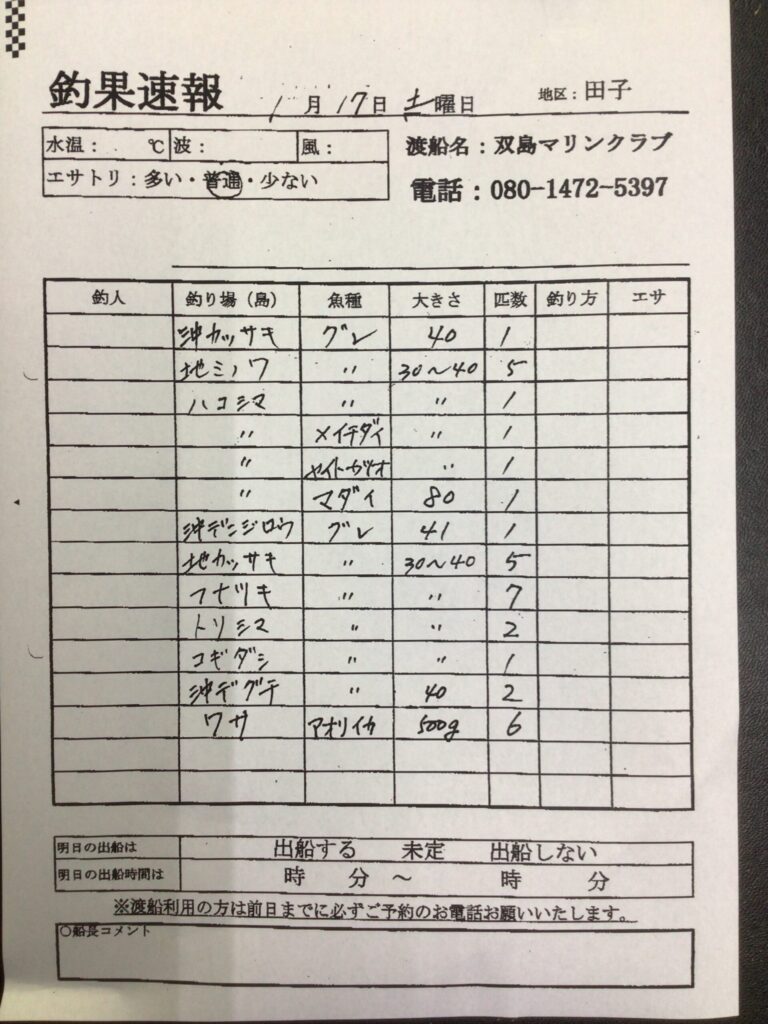 釣果速報 1月17日 土曜日 地区：田子
水温： ℃ 波： 風：
渡船名：双島マリンクラブ
エサトリ：多い・普通・少ない
電話：080-1472-5397
釣人 釣り場（島） 魚種 大きさ 匹数 釣り方 エサ
沖カッサキ グレ 40 1
地ミノワ 〃 30～40 5
ハコシマ 〃 〃 1
〃 メイチダイ 〃 1
〃 ヤイトガツオ 〃 1
〃 マダイ 80 1
沖デンジロウ グレ 41 1
地カッサキ 〃 30～40 5
フナツキ 〃 〃 7
トリシマ 〃 〃 2
コギダシ 〃 〃 1
沖デグチ 〃 40 2
ワサ アオリイカ 500g 6
明日の出船は 出船する 未定 出船しない
明日の出船時間は 時 分 ～ 時 分
※渡船利用の方は前日までに必ずご予約のお電話お願いいたします。
○船長コメント